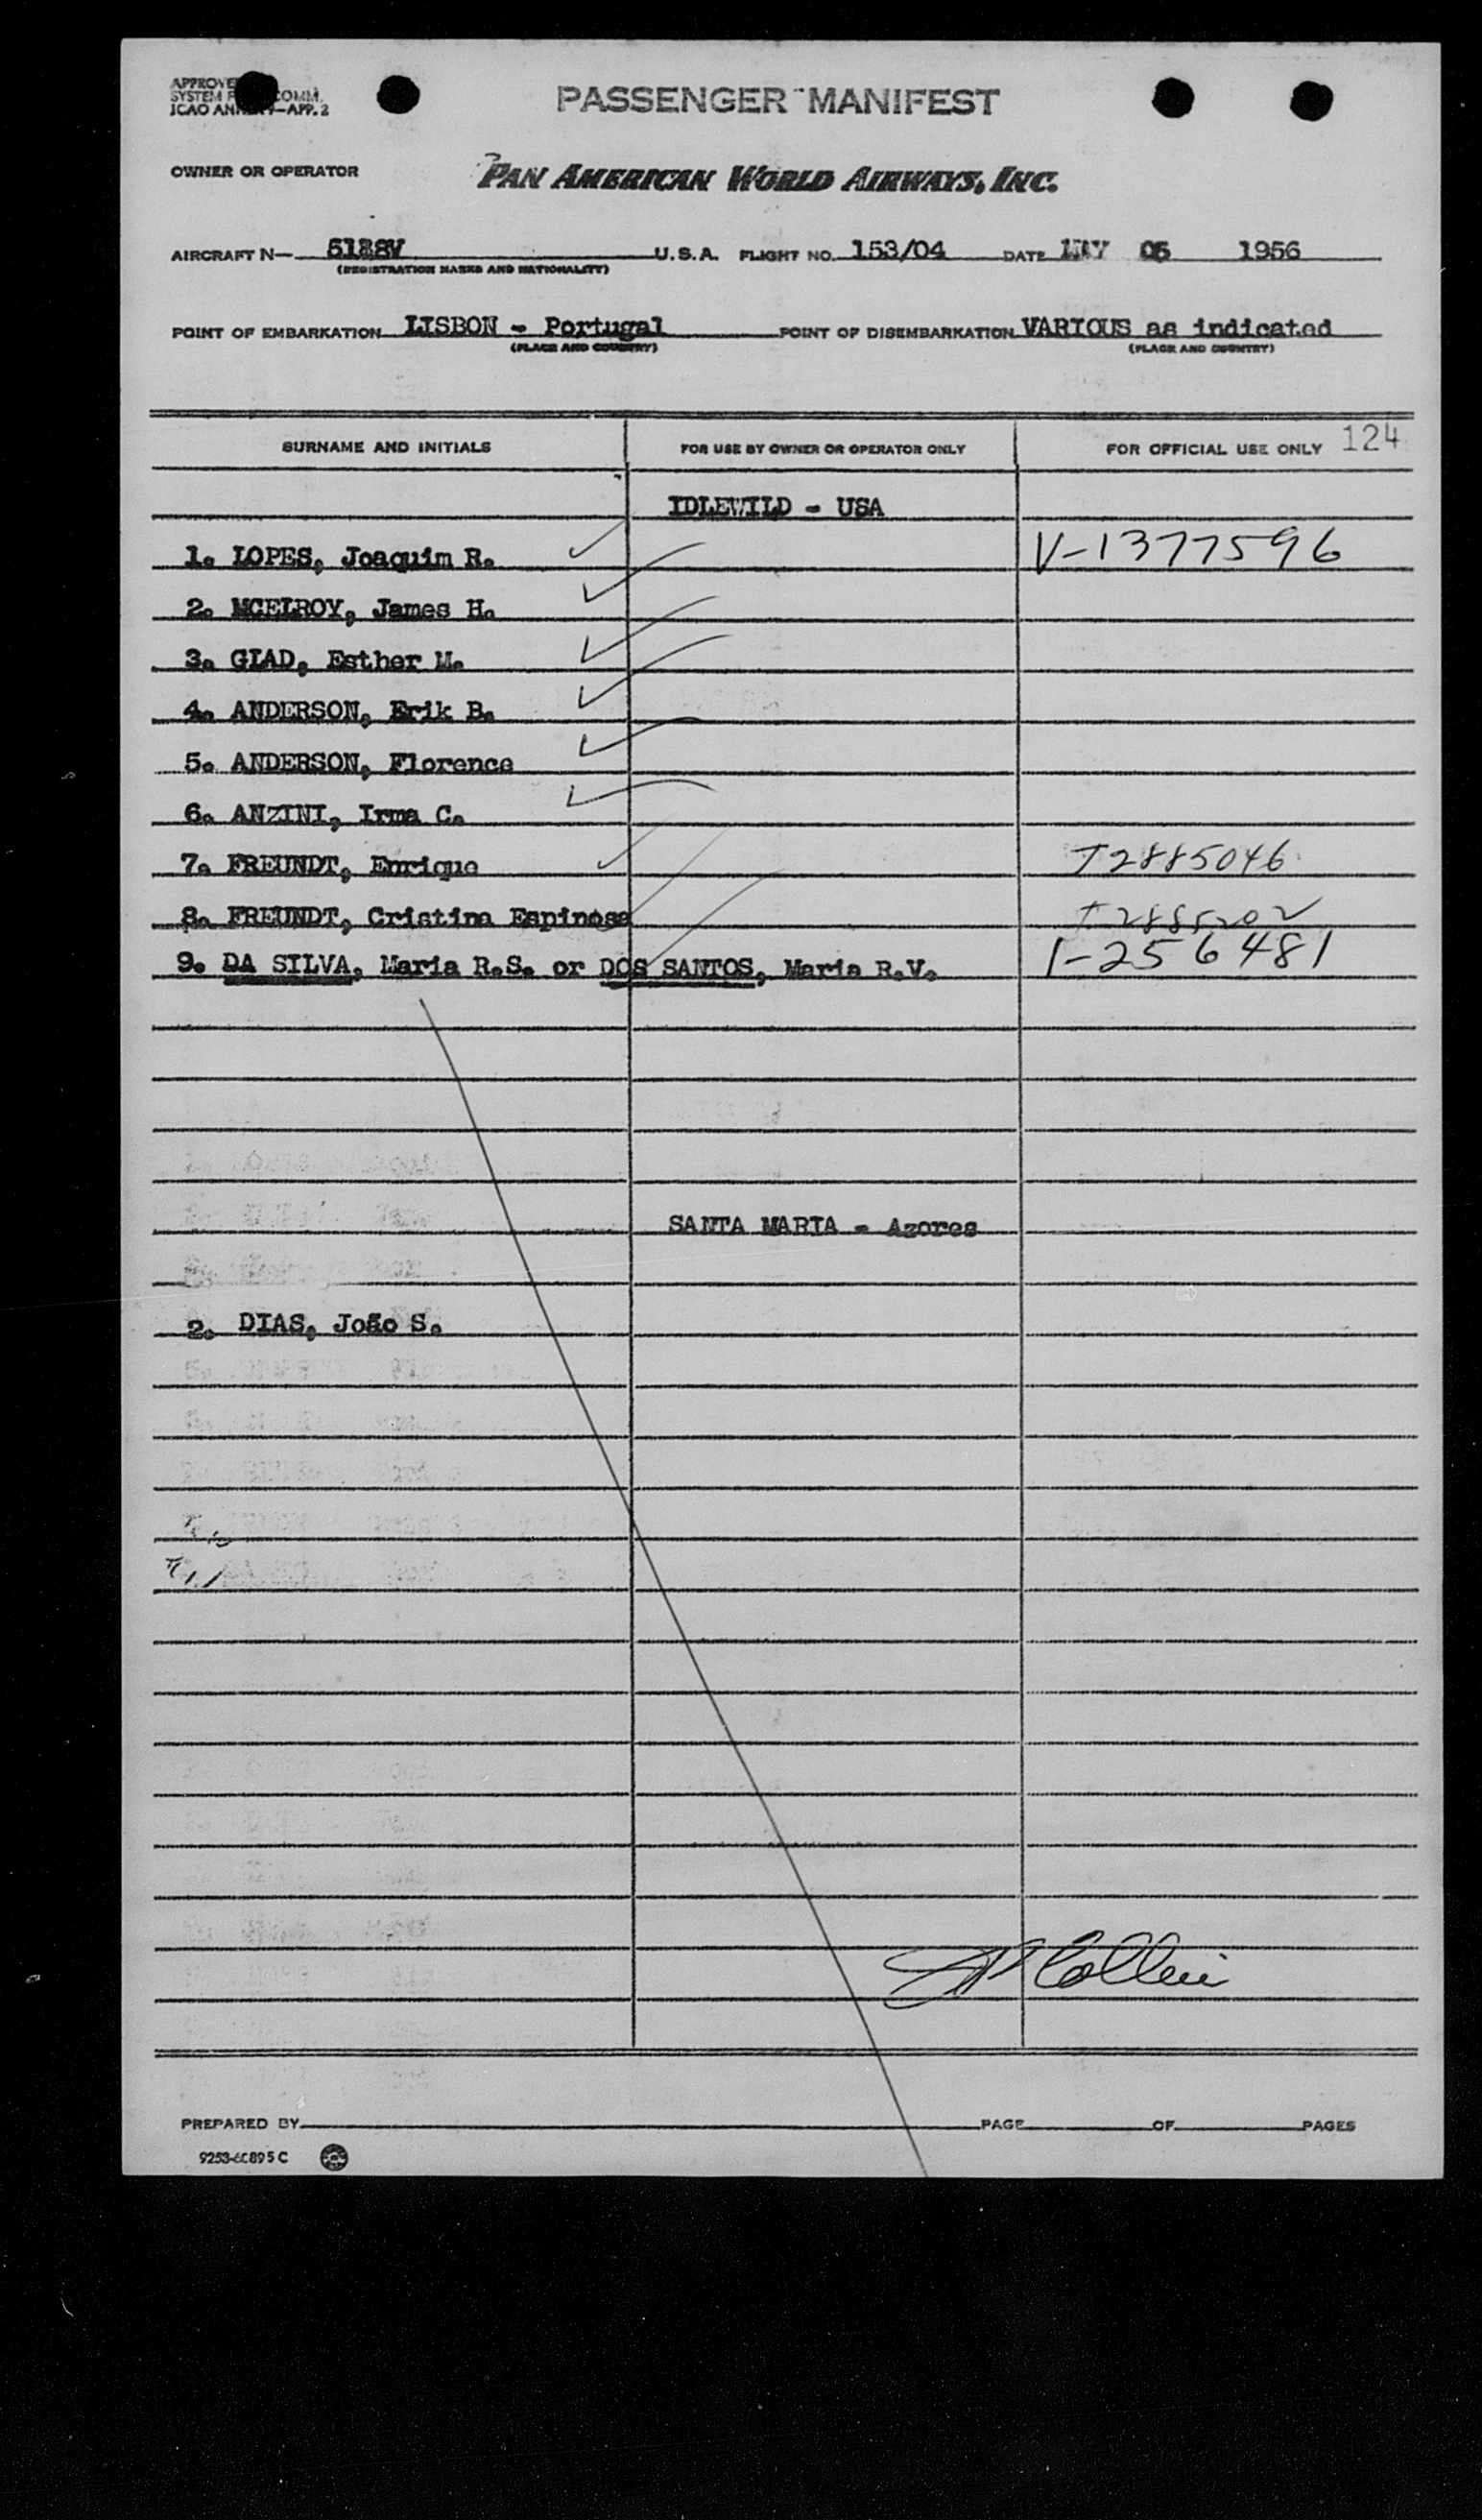 PASSENGER MANIFEST
ICAO APP. 2
OWNER OR OPERATOR PAN AMERICAN WORLD AIRWAYS, INC.
AIRCRAFT N— U.S.A. FLIGHT NO. 153/04 DATE MAY 1956
(REGISTRATION MARKS AND NATIONALITY)
POINT OF EMBARKATION LISBON - Portugal POINT OF DISEMBARKATION VARIOUS as indicated
(PLACE AND COUNTRY) (PLACE AND COUNTRY)
SURNAME AND INITIALS FOR USE BY OWNER OR OPERATOR ONLY FOR OFFICIAL USE ONLY 124
IDLEWILD - USA
1. LOPES, Joaquim R. V-1377596
2. MCELROY, James H.
3. GIAD, Esther M.
4. ANDERSON, Erik B.
5. ANDERSON, Florence
6. ANZINI, Irma C.
7. FREUNDT, Enrique T2885046
8. FREUNDT, Cristina Espinosa T2885202
9. DA SILVA, Maria R.S. or DOS SANTOS, Maria R.V. I-256481
SANTA MARIA - Azores
2. DIAS, João S.
PREPARED BY PAGE OF PAGES